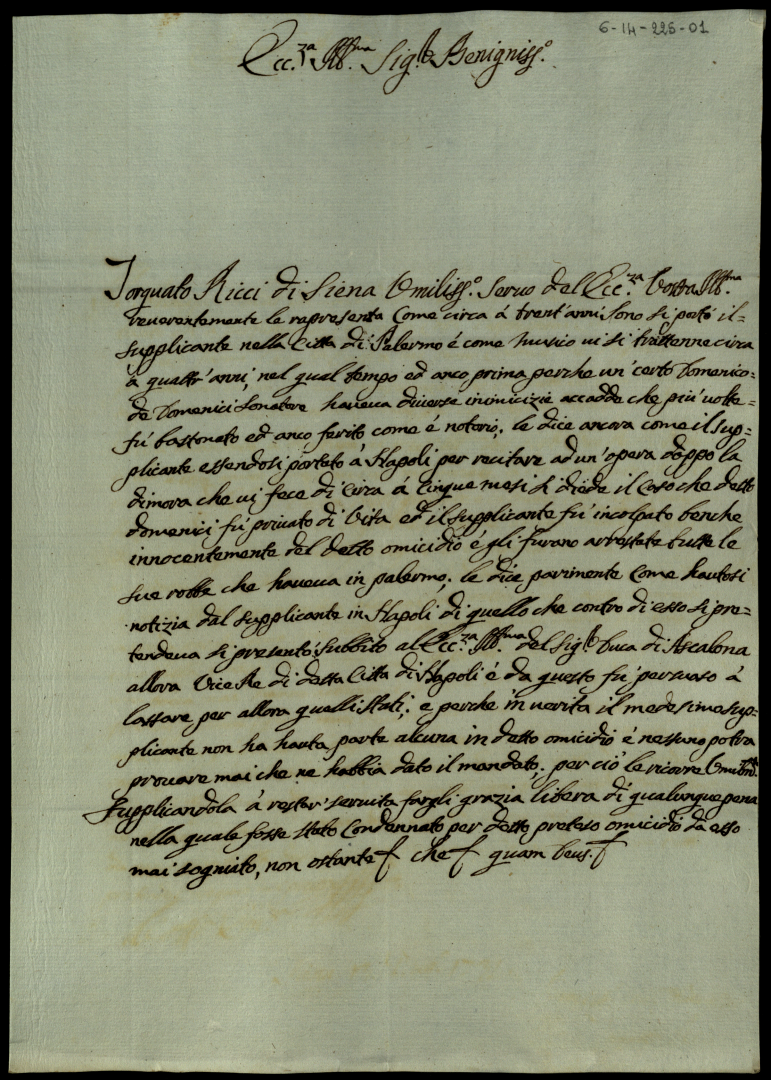 6-14-225-01
Ecc.za Ill.ma Sig.re Benigniss.o
Torquato Ricci di Siena Umiliss.o Servo dell'Ecc.za Vostra Ill.ma
reverentemente le rapresenta come circa á trent'anni sono si portó il=
supplicante nella Cittá di Palermo é come Musico vi si trattenne circa
á quattr'anni, nel qual tempo ed anco prima perche un'certo Domenico=
de Domenici Sonatore haveva diverse inimicizie accadde che piú volte=
fú bastonato ed anco ferito come é notorio; le dice ancora come il sup=
plicante essendosi portato á Napoli per recitare ad un'opera doppo la
dimora che vi fece di circa á cinque mesi si diede il caso che detto
domenici fú privato di vita ed il supplicante fú incolpato benche
innocentemente del detto omicidio é gli furano arrestate tutte le
sue robbe che haveva in palermo; le dice parimente come hautosi
notizia dal supplicante in Napoli di quello che contro di esso si pre=
tendeva si presentó subbito all'Ecc.za Ill.ma del Sig.re Duca di Ascalona
allora Vice Re di detta Cittá di Napoli é da questo fú persuaso á
lassare per allora quelli stati; e perche in veritá il medesimo sup=
plicante non ha hauta parte alcuna in detto omicidio é nessuno potrá
provare mai che ne habbia dato il mandato; per ció le ricorre
Supplicandola á restar servita fargli grazia libera di qualunque pena
nella quale fosse stato condennato per detto preteso omicidio da esso
mai sognato, non ostante che quam Deus.